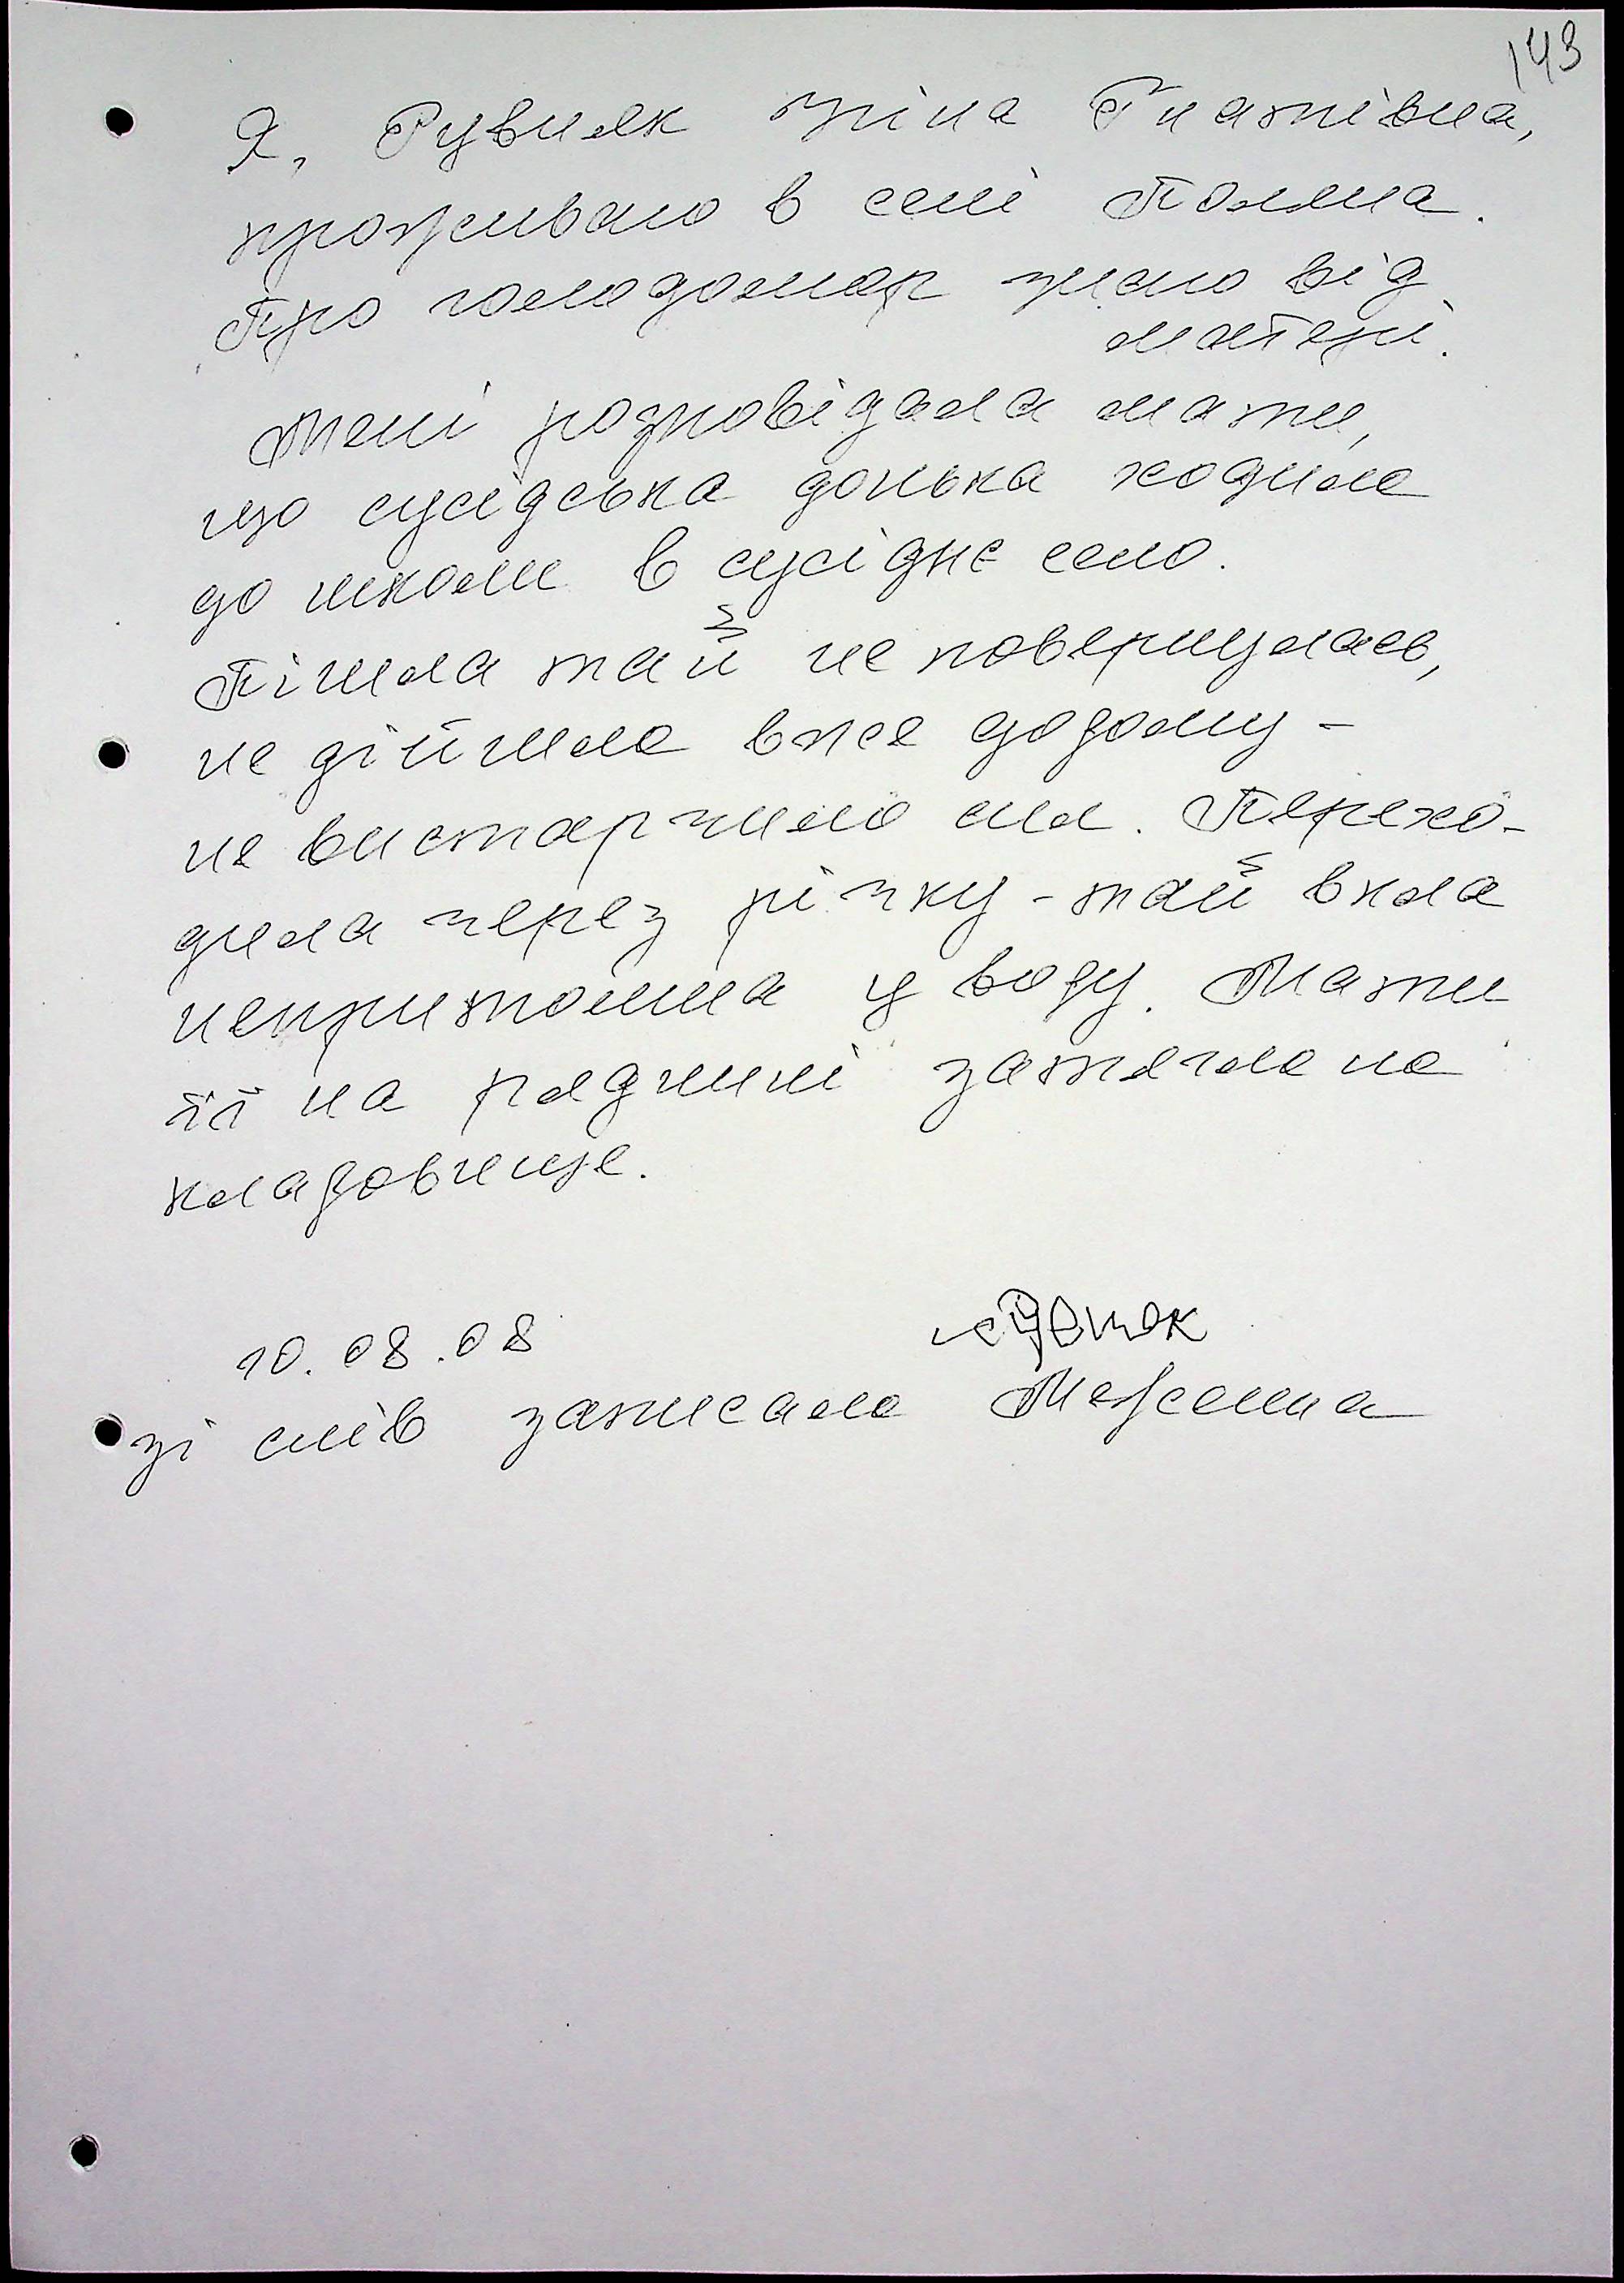 143
Я, Рувняк Зіна Гнатівна,
проживаю в селі Поляна.
Про голодомор знаю від
матері.
Мені розповідала мати,
що сусідська донька ходила
до школи в сусіднє село.
Пішла тай не повернулась,
не дійшла вже додому -
не вистарчило сил. Перехо-
дила через річку - тай впала
непритомна у воду. Мати
її на раднині затягла на
кладовище.
10.08.08
зі слів записала